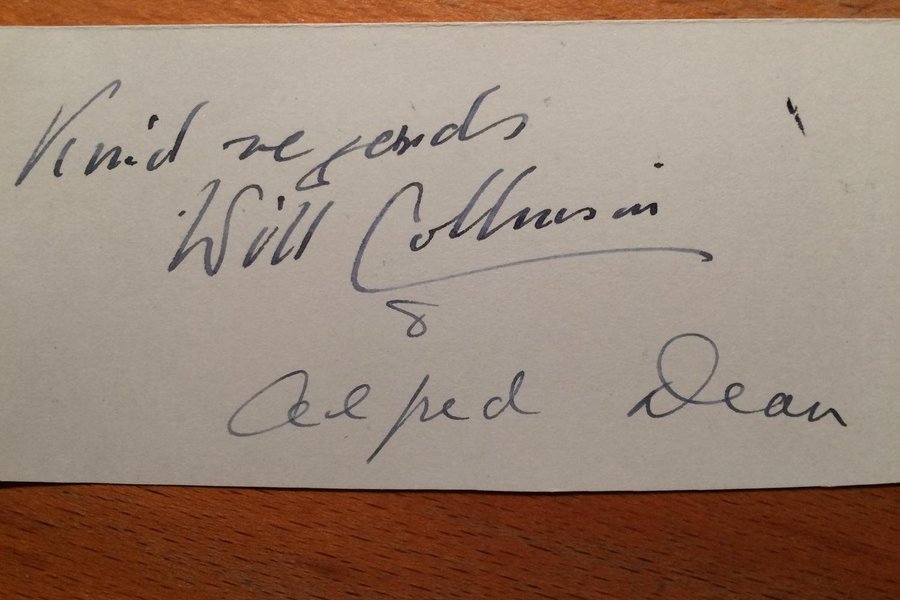 Kind regards
Will Collinson
&
Alfred Dean